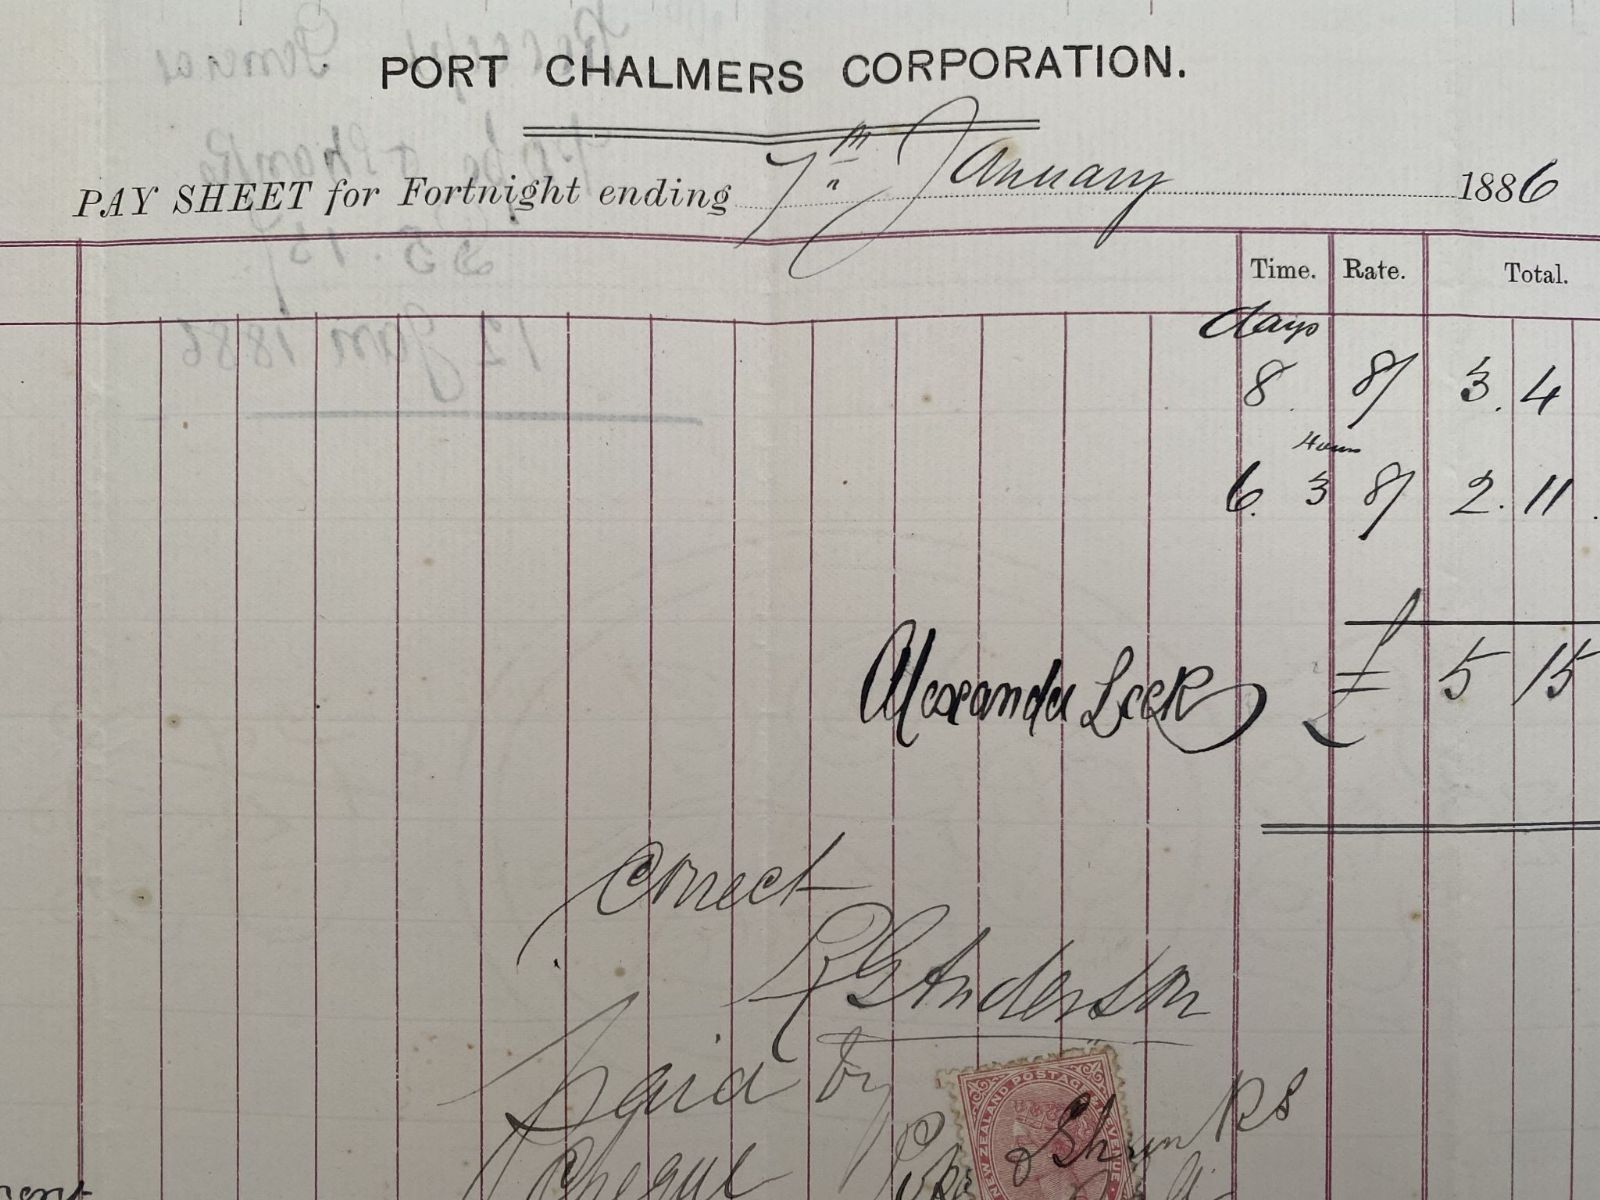 PORT CHALMERS CORPORATION.
PAY SHEET for Fortnight ending 7th January 1886
Time. Rate. Total.
days
8 8/ 3. 4
Hours
6. 3 8/ 2. 11
Alexander Leek £ 5 15
Correct
R G Anderson
Paid by
Cheque
NEW ZEALAND POSTAGE & REVENUE
12 Jan 1886